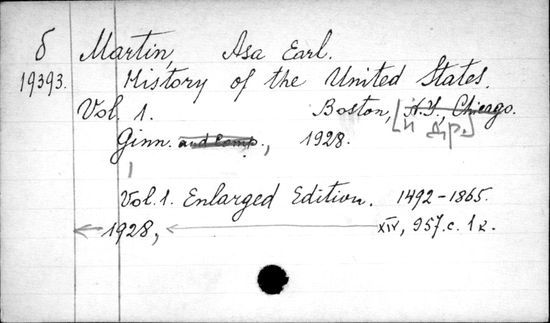 б Martin, Asa Earl.
19393. History of the United States.
Vol. 1. Boston, [N.Y., Chicago.
и др.]
Ginn. and Comp., 1928.
Vol. 1. Enlarged Edition. 1492-1865.
1928, XIV, 957.с. 1 к.